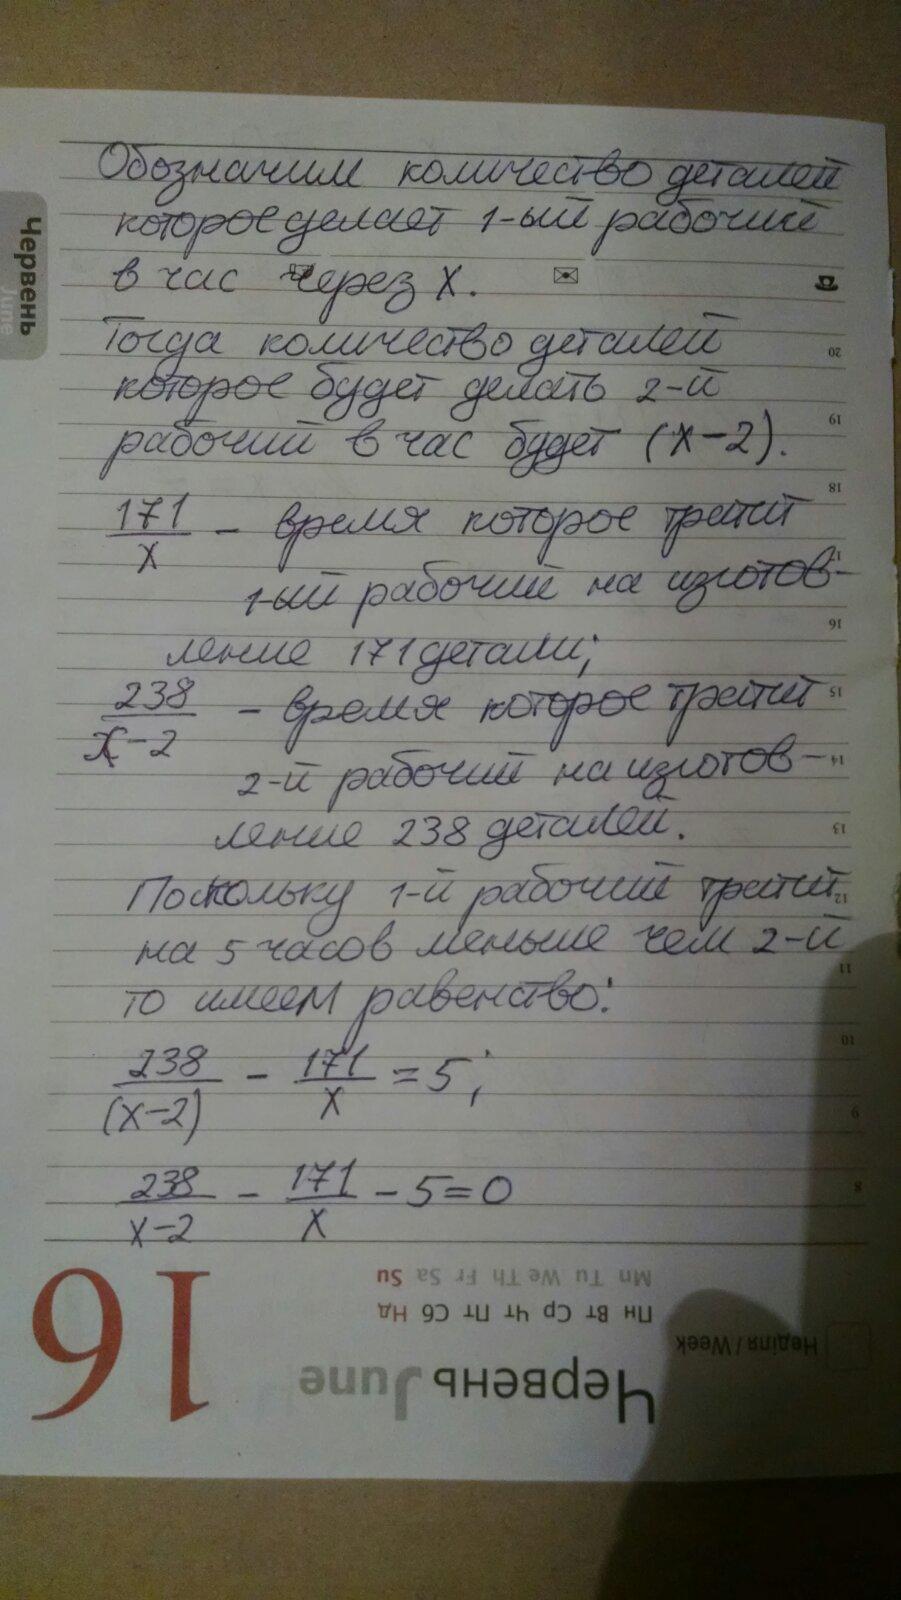 Обозначим количество деталей
которое делает 1-ый рабочий
в час через x.
Тогда количество деталей
которое будет делать 2-й
рабочий в час будет (x-2).
171/x - время которое тратит
1-ый рабочий на изготов-
ление 171 детали;
238/x-2 - время которое тратит
2-й рабочий на изготов-
ление 238 деталей.
Поскольку 1-й рабочий тратит
на 5 часов меньше чем 2-й
то имеем равенство:
238/(x-2) - 171/x = 5;
238/x-2 - 171/x - 5 = 0
Червень
June
20
19
18
17
16
15
14
13
12
11
10
9
8
Mn Tu We Th Fr Sa Su
Пн Вт Ср Чт Пт Сб Нд
Неділя / Week
Червень June
16